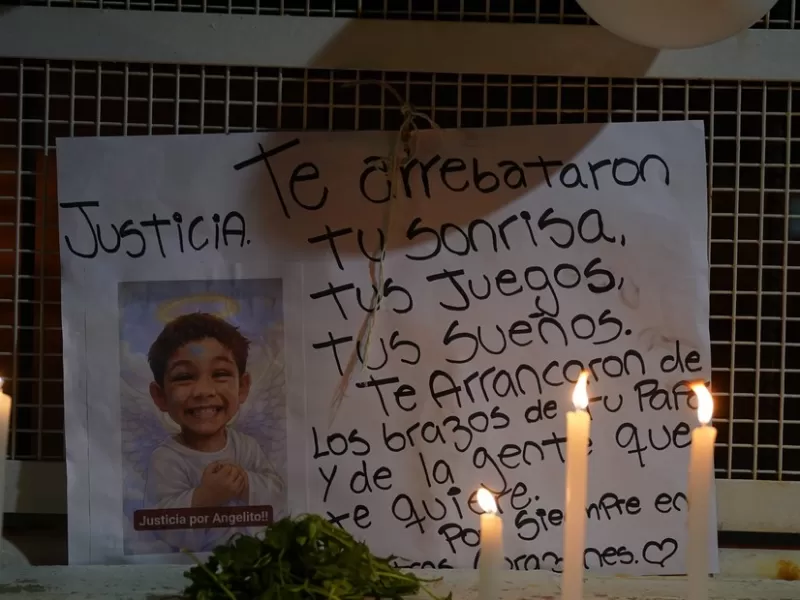 Te arrebataron
JUSTICIA.
tu sonrisa,
tus Juegos,
tus Sueños.
Te Arrancaron de
Los brazos de tu Papá
Y de la gente que
te quiere.
Por Siempre en
Corazones. ♡
Justicia por Angelito!!